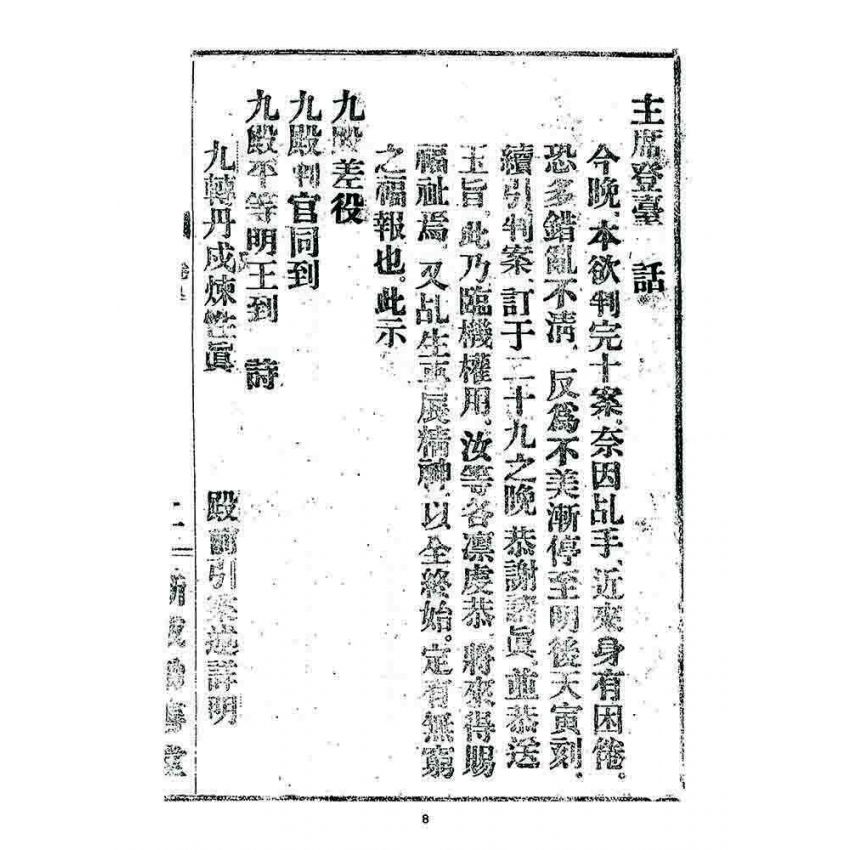 主席登臺　話
今晚、本欲判完十案、奈因乩手、近來身有困倦。
恐多錯亂不清、反爲不美漸停至明後天寅刻。
續引判案、訂于二十九之晚、恭謝諸眞、並恭送
玉旨、此乃臨機權用、汝等各凜虔恭、將來得賜
福祉焉、又乩生再展精神、以全終始。定有無窮
之福報也。此示
九殿差役
九殿判官同到
九殿平等明王到　詩
九轉丹成煉性眞　殿前引案述詳明
二一
8